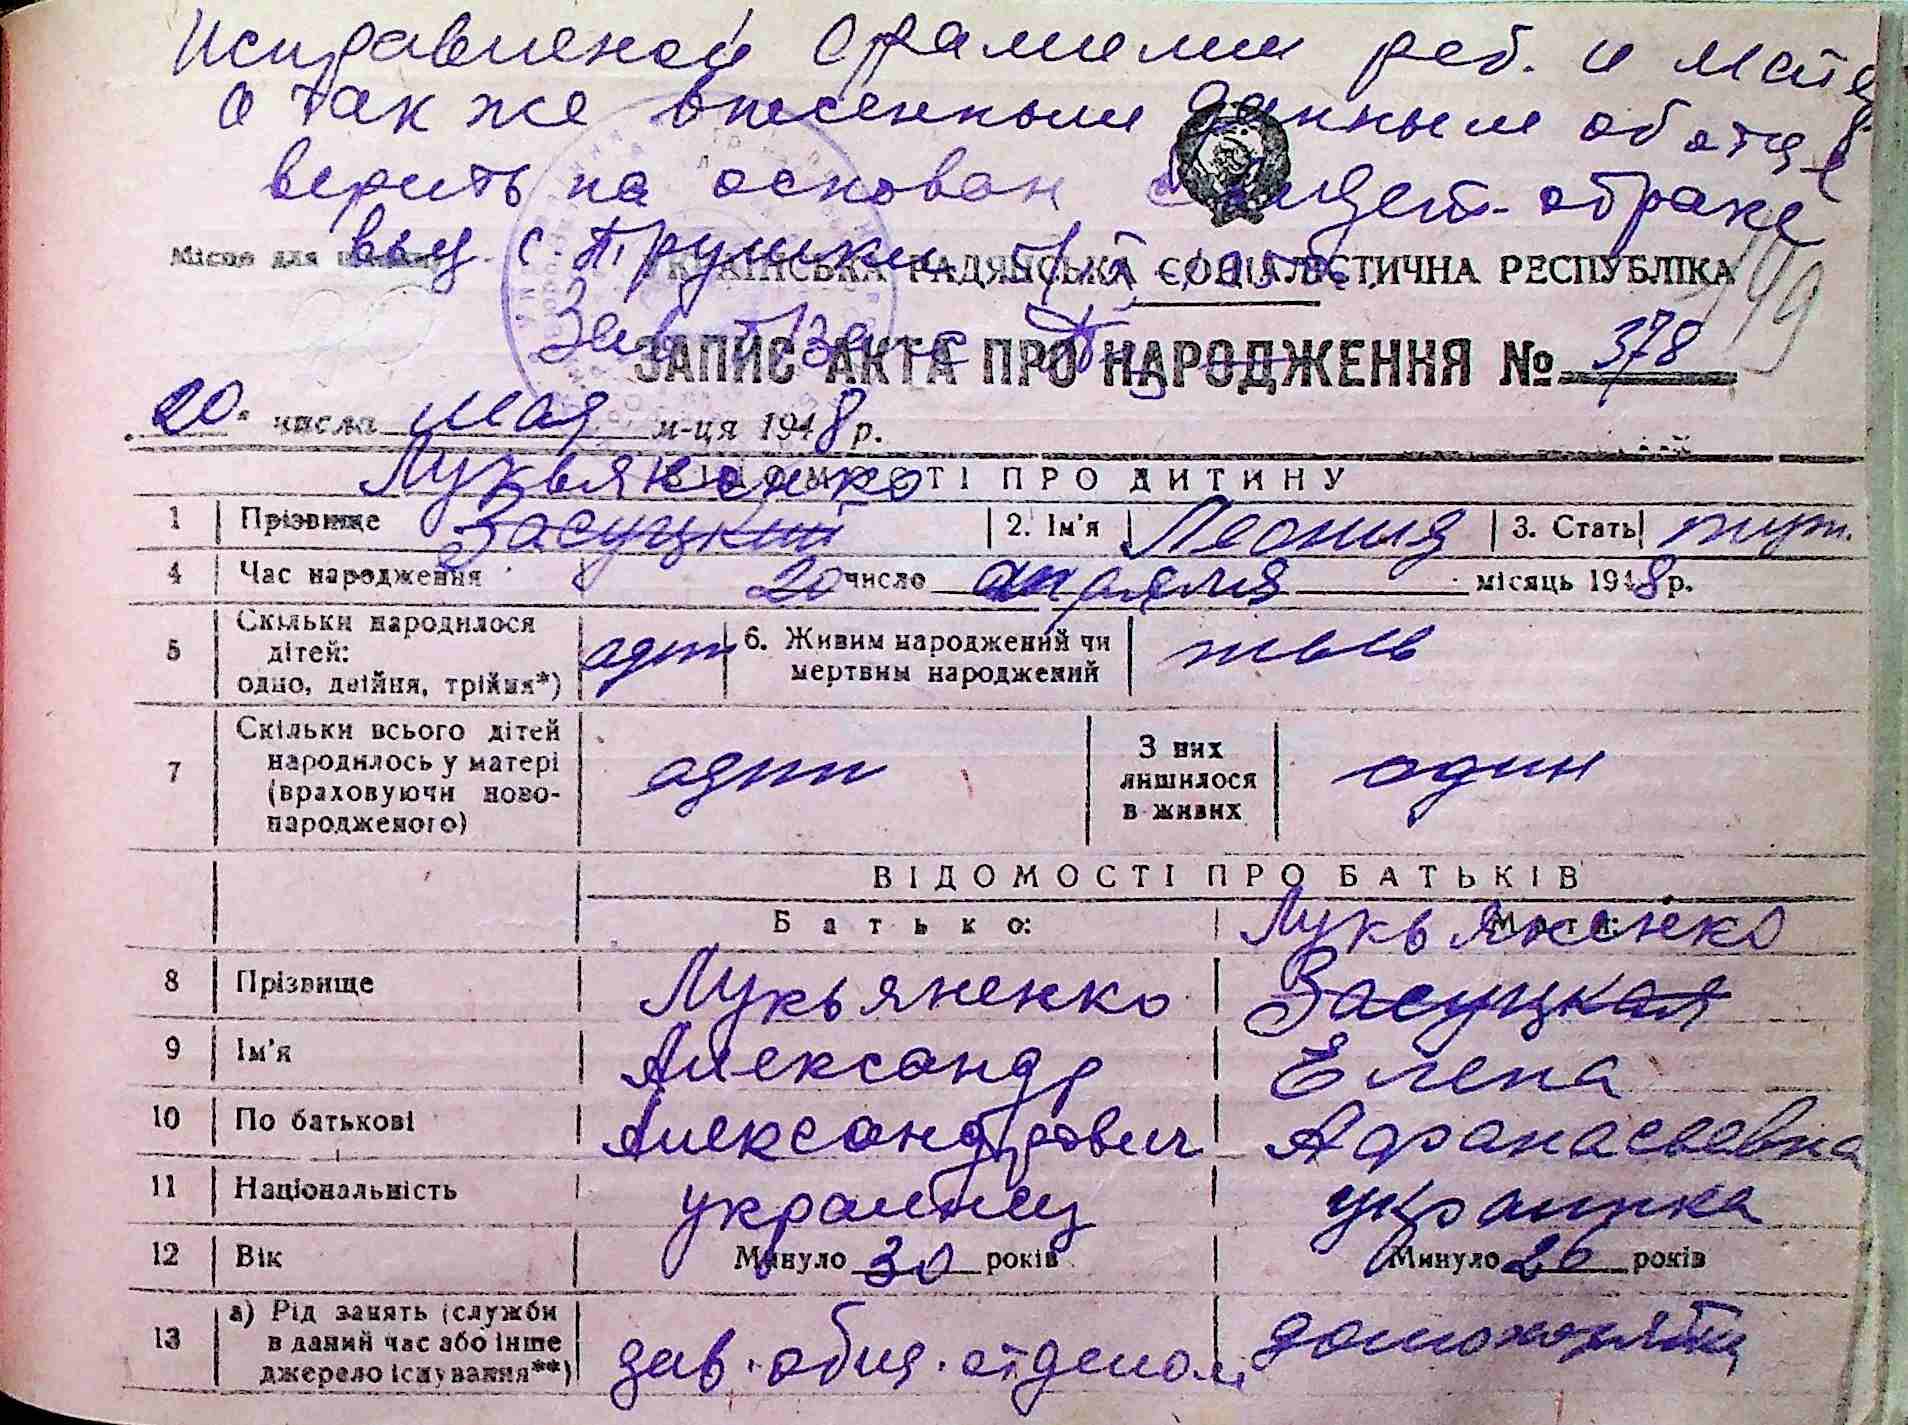 Исправленой фамилии реб. и матер
а так же внесенным данным об отце
верить на основан свидет. о браке
выд. с.
Місце для
УКРАЇНСЬКА РАДЯНСЬКА СОЦІАЛІСТИЧНА РЕСПУБЛІКА
Зав.
ЗАПИС АКТА ПРО НАРОДЖЕННЯ № 378
20 числа мая м-ця 1948 р.
Лукьяненко
ВІДОМОСТІ ПРО ДИТИНУ
1 Прізвище Засуцкий 2. Ім'я Леонид 3. Стать муж.
4 Час народження 20 число апреля місяць 1948 р.
5 Скільки народилося дітей: одно, двійня, трійня*) один 6. Живим народжений чи мертвим народжений живым
7 Скільки всього дітей народилось у матері (враховуючи новонародженого) один З них лишилося в живих один
ВІДОМОСТІ ПРО БАТЬКІВ
Батько: Мати:
Лукьяненко
8 Прізвище Лукьяненко Засуцкая
9 Ім'я Александр Елена
10 По батькові Александрович Афанасьевна
11 Національність украинец украинка
12 Вік Минуло 30 років Минуло 26 років
13 а) Рід занять (служби в даний час або інше джерело існування**) зав. общ. отделом домохозяйка